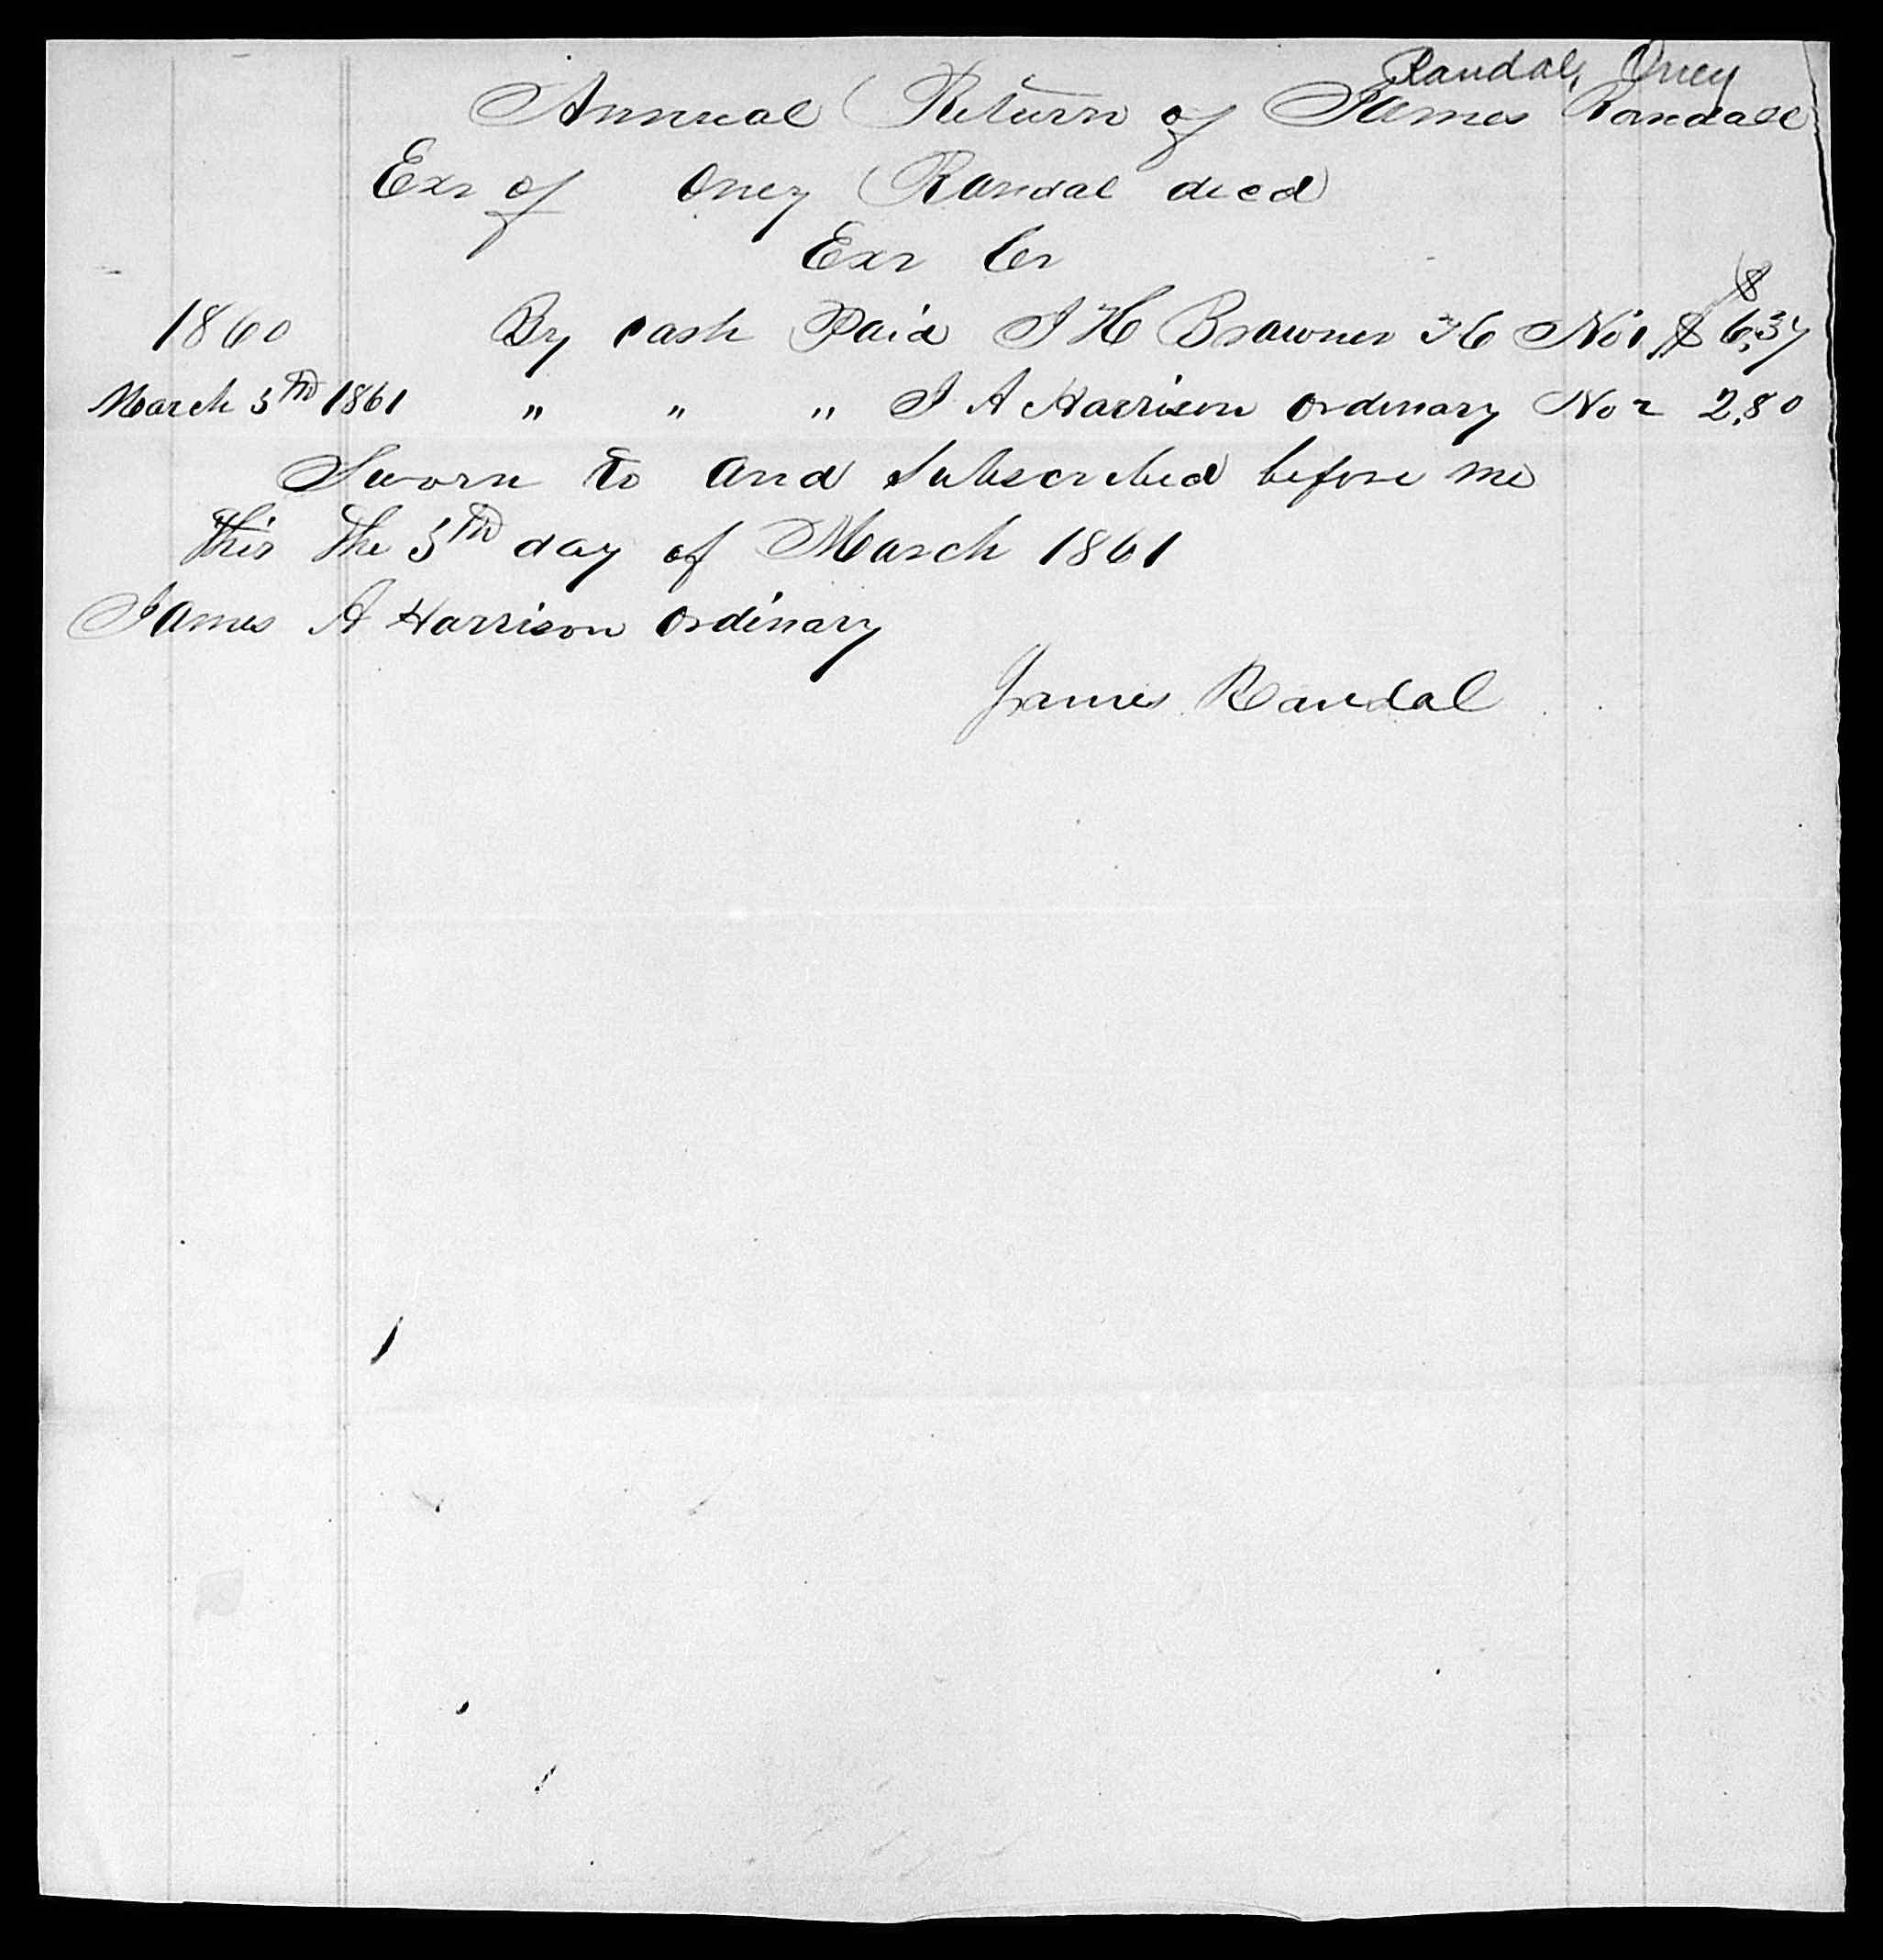 Randal, Oney
Annual Return of James Randall
Exr of Oney Randal decd
Exr Cr
$
1860 By cash Paid J H Brawner No 1 $ 6,37
March 5th 1861 " " " J A Harrison Ordinary No 2 2,80
Sworn to and Subscribed before me
this the 5th day of March 1861
James A Harrison Ordinary
James Randal